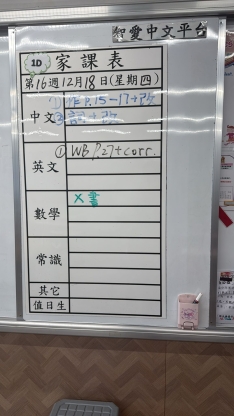 智愛中文平台
1D 家課表
第16週12月18日(星期四)
中文 ①作P.15-17+改
②詞+改
英文 ① WB P.27+corr.
數學 X書
常識
其它
值日生